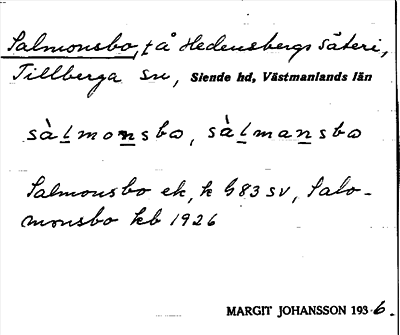 Salmonsbo, t å Hedensbergs säteri,
Tillberga sn, Siende hd, Västmanlands län
sàlmonsbo, sàlmansbo
Salmonsbo ek, k G83 SV, Salo-
monsbo kb 1926
MARGIT JOHANSSON 1936.